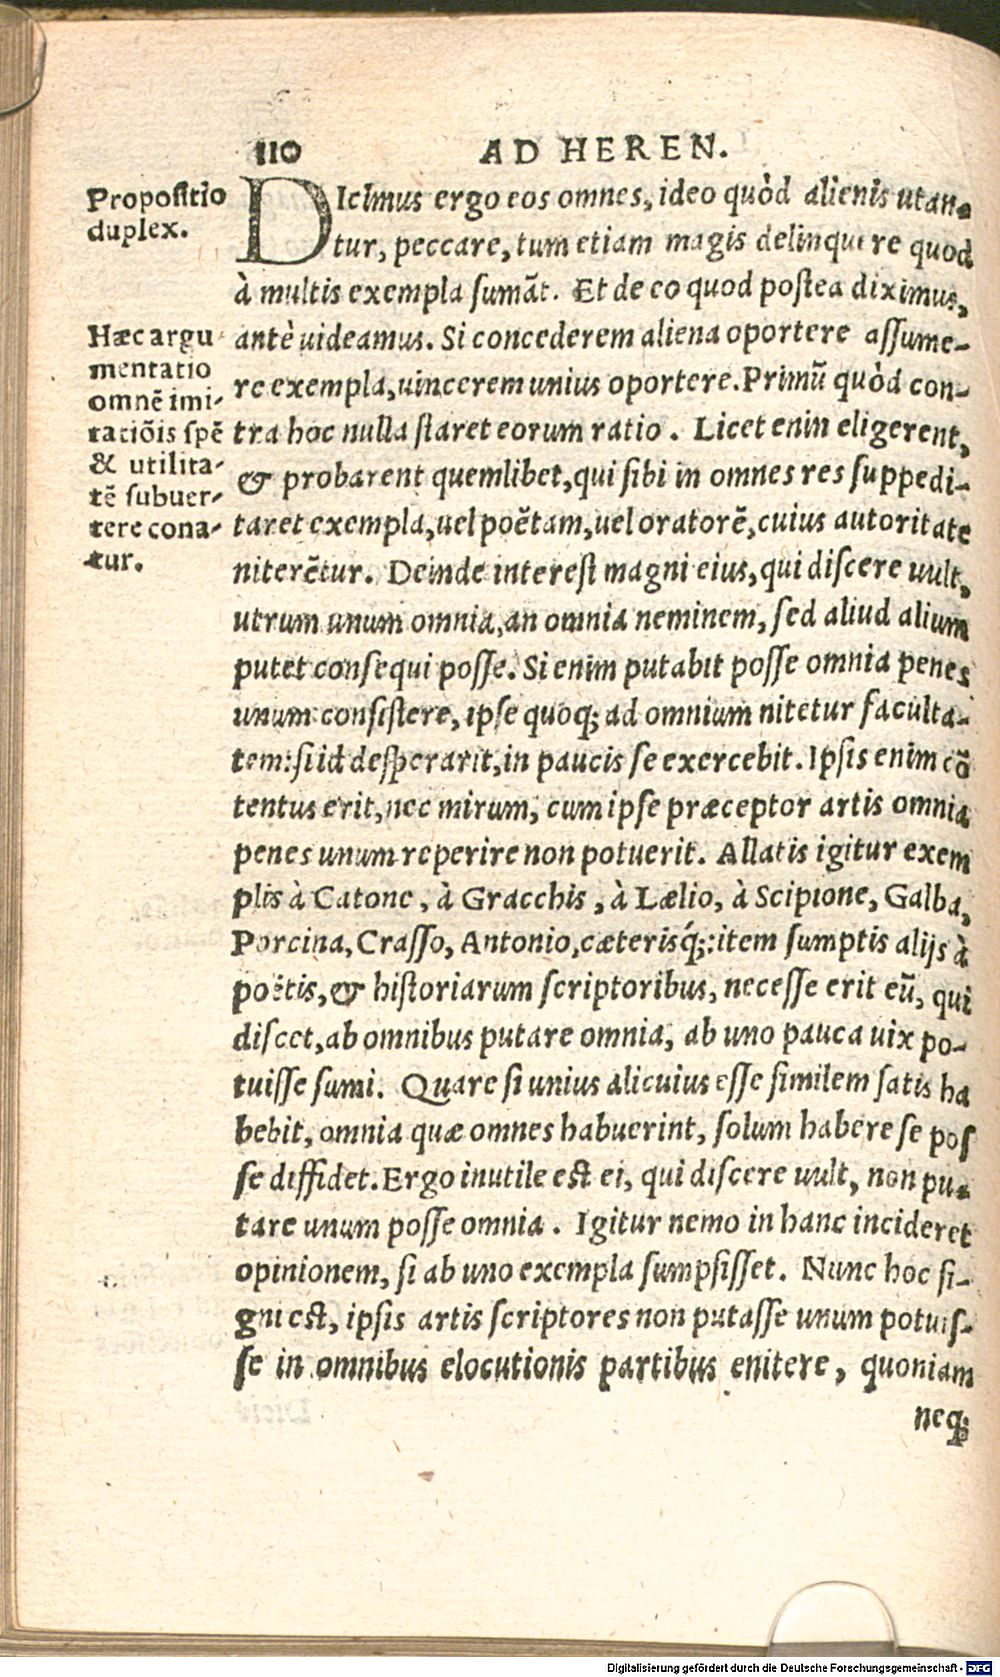 110 AD HEREN.
Propositio
duplex.
DIcimus ergo eos omnes, ideo quòd alienis utan-
tur, peccare, tum etiam magis delinquere quod
à multis exempla sumãt. Et de eo quod postea diximus,
antè uideamus. Si concederem aliena oportere assume-
re exempla, uincerem unius oportere. Primũ quòd con-
tra hoc nulla staret eorum ratio. Licet enin eligerent,
& probarent quemlibet, qui sibi in omnes res suppedi-
taret exempla, uel poëtam, uel oratorẽ, cuius autoritate
niterẽtur. Deinde interest magni eius, qui discere uult,
utrum unum omnia, an omnia neminem, sed aliud alium
putet consequi posse. Si enim putabit posse omnia penes
unum consistere, ipse quoq; ad omnium nitetur faculta-
tem: si id desperarit, in paucis se exercebit. Ipsis enim cõ
tentus erit, nec mirum, cum ipse præceptor artis omnia
penes unum reperire non potuerit. Allatis igitur exem
plis à Catone, à Gracchis, à Lælio, à Scipione, Galba,
Porcina, Crasso, Antonio, cæterisq́;: item sumptis alijs à
poëtis, & historiarum scriptoribus, necesse erit eũ, qui
discet, ab omnibus putare omnia, ab uno pauca uix po-
tuisse sumi. Quare si unius alicuius esse similem satis ha
bebit, omnia quæ omnes habuerint, solum habere se pos
se diffidet. Ergo inutile est ei, qui discere uult, non pu-
tare unum posse omnia. Igitur nemo in hanc incideret
opinionem, si ab uno exempla sumpsisset. Nunc hoc si-
gni est, ipsis artis scriptores non putasse unum potuis-
se in omnibus elocutionis partibus enitere, quoniam
neq;
Hæc argu
mentatio
omnẽ imi-
tatiõis spẽ
& utilita-
tẽ subuer-
tere cona-
tur.
Digitalisierung gefördert durch die Deutsche Forschungsgemeinschaft - DFG